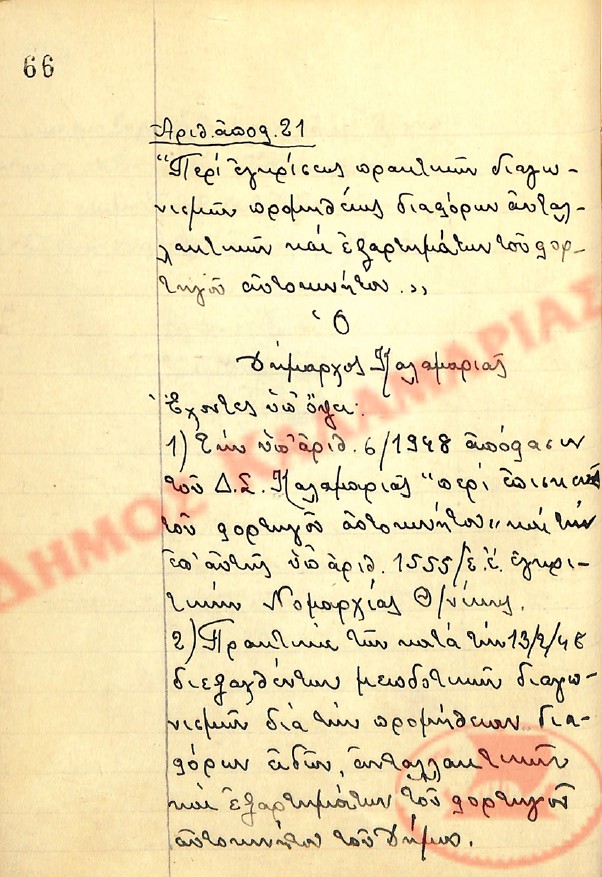 66
Αριθ. ἀποφ. 21
"Περί ἐγκρίσεως πρακτικῶν διαγω-
νισμῶν προμηθείας διαφόρων ἀνταλ-
λακτικῶν καί ἐξαρτημάτων τοῦ φορ-
τηγοῦ αὐτοκινήτου.,,
Ὁ
Δήμαρχος Καλαμαριᾶς
Ἔχοντες ὑπ' ὄψει:
1) Τήν ὑπ' ἀριθ. 6/1948 ἀπόφασιν
τοῦ Δ.Σ. Καλαμαριᾶς "περί ἐπισκευῆς
τοῦ φορτηγοῦ αὐτοκινήτου,, καί τήν
ἐπ' αὐτῆς ὑπ' ἀριθ. 1555/ἐ.ἔ. ἐγκρι-
τικήν Νομαρχίας Θ/νίκης.
2) Πρακτικά τῶν κατά τήν 13/2/48
διεξαχθέντων μειοδοτικῶν διαγω-
νισμῶν διά τήν προμήθειαν δια-
φόρων εἰδῶν, ἀνταλλακτικῶν
καί ἐξαρτημάτων τοῦ φορτηγοῦ
αὐτοκινήτου τοῦ Δήμου.
ΔΗΜΟΣ ΚΑΛΑΜΑΡΙΑΣ